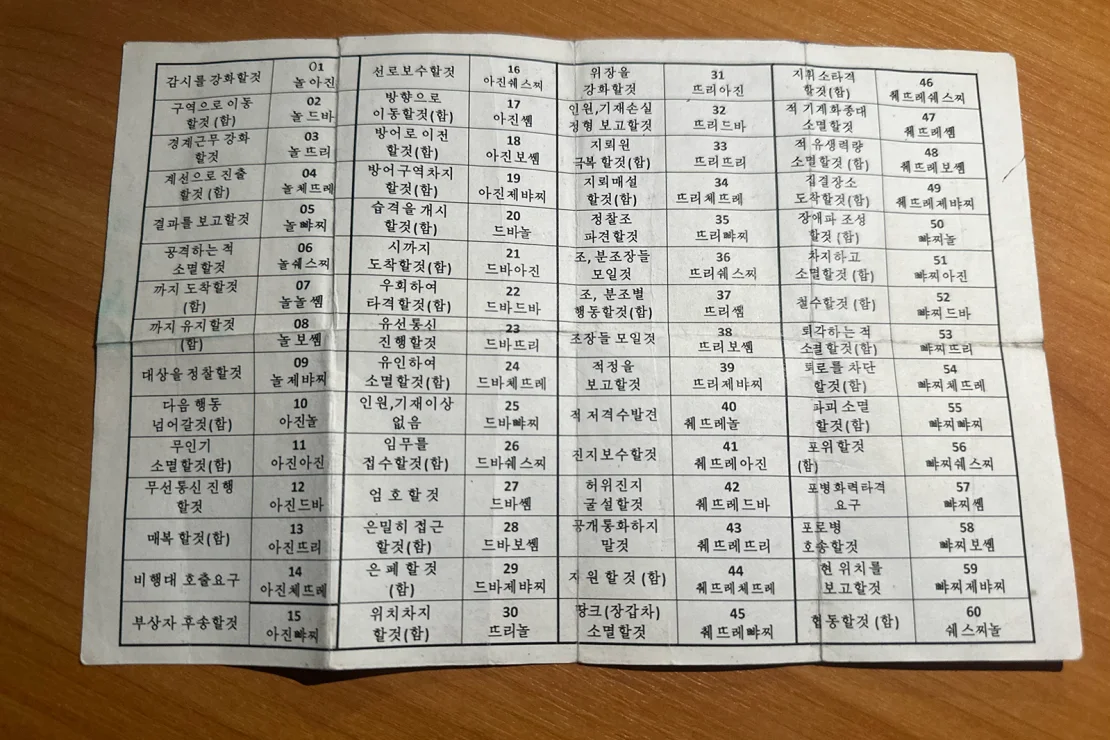 감시를 강화할것
01
놀 아진
구역으로 이동
할것 (함)
02
놀 드바
경계근무 강화
할것
03
놀 뜨리
계선으로 진출
할것 (함)
04
놀 체뜨레
결과를 보고할것
05
놀 뺘찌
공격하는 적
소멸할것
06
놀쉐스찌
까지 도착할것
(함)
07
놀놀쎔
까지 유지할것
(함)
08
놀 보쎔
대상을 정찰할것
09
놀 제뱌찌
다음 행동
넘어갈것(함)
10
아진놀
무인기
소멸할것(함)
11
아진아진
무선통신 진행
할것
12
아진드바
매복 할것(함)
13
아진뜨리
비행대 호출요구
14
아진체뜨레
부상자 후송할것
15
아진뺘찌
선로보수할것
16
아진쉐스찌
방향으로
이동할것(함)
17
아진쎔
방어로 이전
할것(함)
18
아진보쎔
방어구역차지
할것(함)
19
아진제뱌찌
습격을 개시
할것(함)
20
드바놀
시까지
도착할것(함)
21
드바아진
우회하여
타격할것(함)
22
드바드바
유선통신
진행할것
23
드바뜨리
유인하여
소멸할것(함)
24
드바체뜨레
인원,기재이상
없음
25
드바뺘찌
임무를
접수할것(함)
26
드바쉐스찌
엄호할것
27
드바쎔
은밀히 접근
할것(함)
28
드바보쎔
은폐할것
(함)
29
드바제뱌찌
위치차지
할것(함)
30
뜨리놀
위장을
강화할것
31
뜨리아진
인원,기재손실
정형 보고할것
32
뜨리드바
지뢰원
극복 할것(함)
33
뜨리뜨리
지뢰매설
할것(함)
34
뜨리체뜨레
정찰조
파견할것
35
뜨리뺘찌
조, 분조장들
모일것
36
뜨리쉐스찌
조, 분조별
행동할것(함)
37
뜨리쎔
조장들 모일것
38
뜨리보쎔
적정을
보고할것
39
뜨리제바찌
적 저격수발견
40
췌뜨레놀
진지보수할것
41
췌뜨레아진
허위진지
굴설할것
42
췌뜨레드바
공개통화하지
말것
43
췌뜨레뜨리
지원할것 (함)
44
췌뜨레체뜨레
땅크(장갑차)
소멸할것
45
췌뜨레뺘찌
지휘소타격
할것(함)
46
췌뜨레쉐스찌
적 기계화종대
소멸할것
47
췌뜨레쎔
적 유생력량
소멸할것(함)
48
췌뜨레보쎔
집결장소
도착할것(함)
49
췌뜨레제뱌찌
장애파 조성
할것 (함)
50
뺘찌놀
차지하고
소멸할것 (함)
51
뺘찌아진
철수할것 (함)
52
뺘찌드바
퇴각하는 적
소멸할것(함)
53
뺘찌뜨리
퇴로를 차단
할것(함)
54
뺘찌체뜨레
파괴 소멸
할것(함)
55
뺘찌뺘찌
포위할것
(함)
56
뺘찌쉐스찌
포병화력타격
요구
57
뺘찌쎔
포로병
호송할것
58
뺘찌보쎔
현 위치를
보고할것
59
뺘찌제뱌찌
협동할것 (함)
60
쉐스찌놀